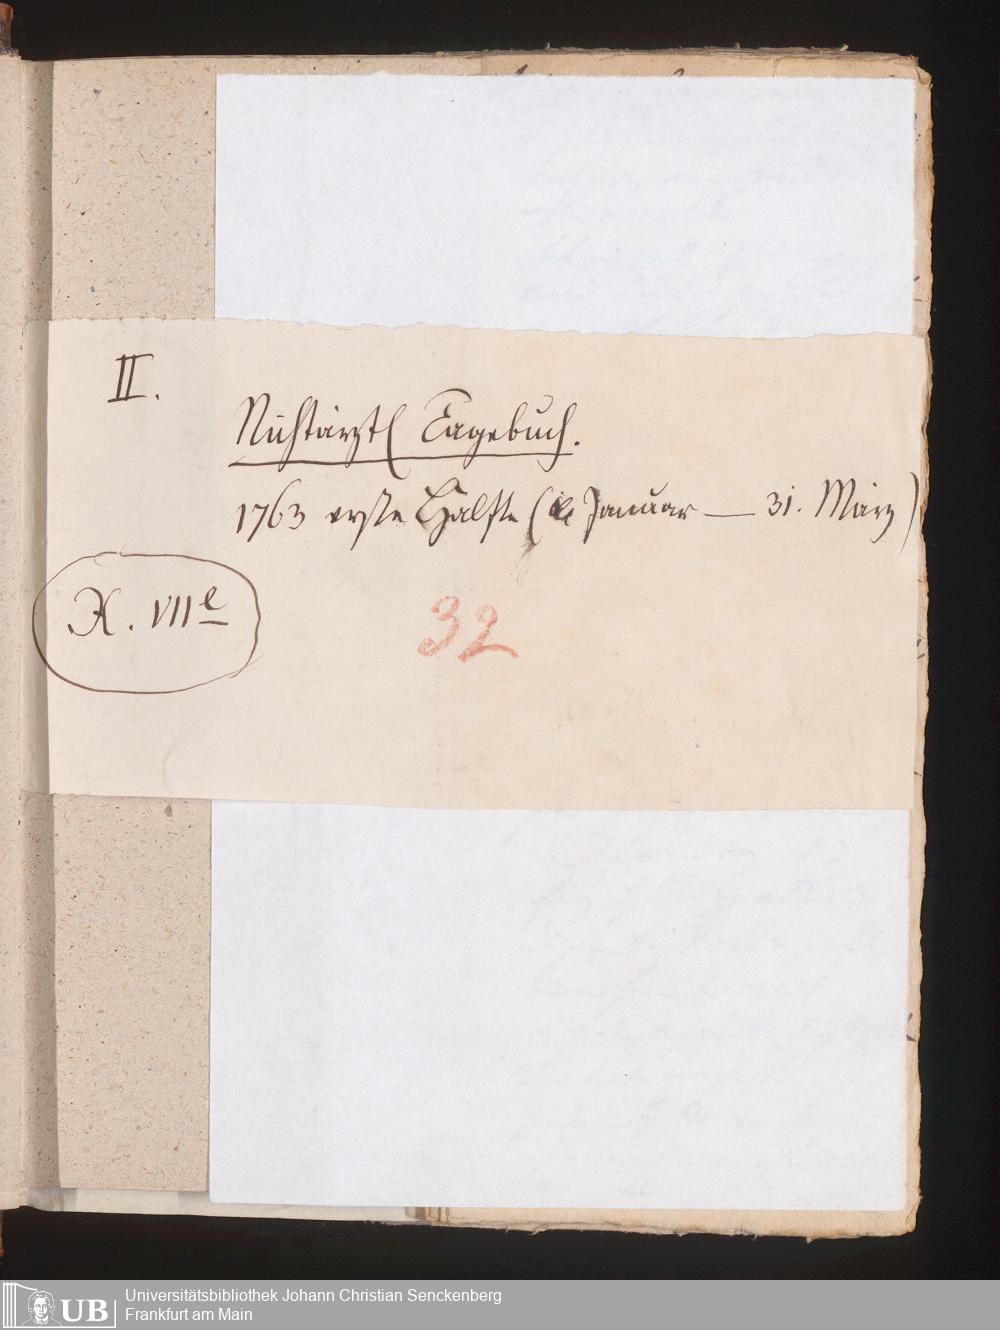 II.
Nichtärztl Tagebuch.
1763 erste Hälfte ( Januar — 31. März)
K. VII e
32
UB
Universitätsbibliothek Johann Christian Senckenberg
Frankfurt am Main